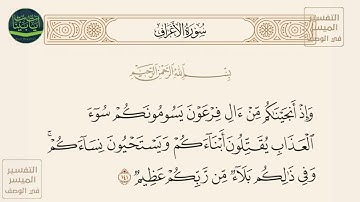 سُورَةُ الأَعْرَافِ
التفسير
الميسر
في الوصف
بِسْمِ اللَّهِ الرَّحْمَٰنِ الرَّحِيمِ
وَإِذْ أَنجَيْنَٰكُم مِّنْ ءَالِ فِرْعَوْنَ يَسُومُونَكُمْ سُوٓءَ
ٱلْعَذَابِ يُقَتِّلُونَ أَبْنَآءَكُمْ وَيَسْتَحْيُونَ نِسَآءَكُمْ ۚ
وَفِى ذَٰلِكُم بَلَآءٌ مِّن رَّبِّكُمْ عَظِيمٌ ١٤١
التفسير
الميسر
في الوصف